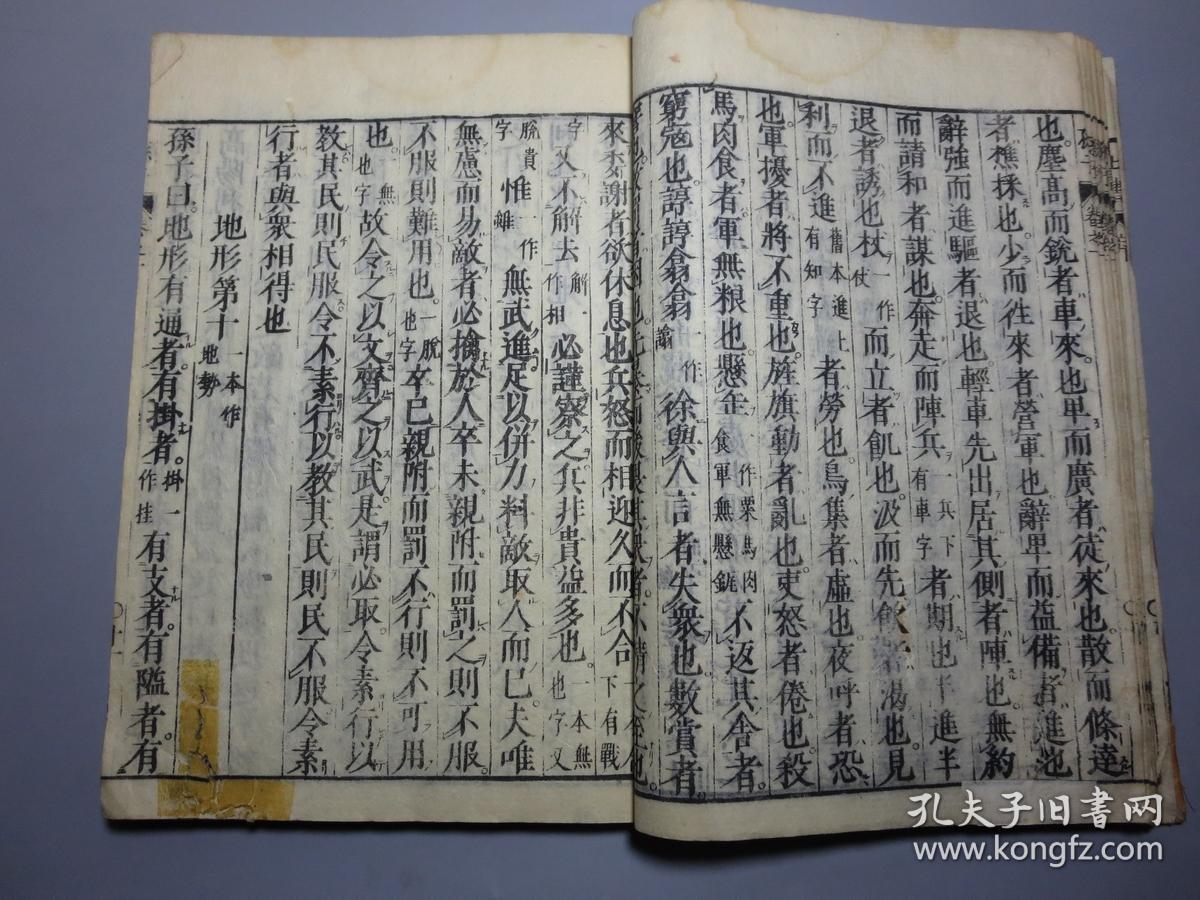 也塵高而銳者車來也卑而廣者徒來也散而條達
者樵採也少而往來者營軍也辭卑而益備者進也
辭強而進驅者退也輕車先出居其側者陣也無約
而請和者謀也奔走而陣兵一兵下有車字者期也半進半
退者誘也杖一作仗而立者飢也汲而先飲者渴也見
利而不進舊本進上有知字者勞也鳥集者虛也夜呼者恐
也軍擾者將不重也旌旗動者亂也吏怒者倦也殺
馬肉食者軍無粮也懸缶一作粟馬肉食軍無懸缻不返其舍者
窮寇也諄諄翕翕一作謵徐與人言者失衆也數賞者
來委謝者欲休息也兵怒而相迎久而不合一下有戰
字又不解去解一作相必謹察之兵非貴益多也一本無也字又
脫貴字惟一作雖無武進足以併力料敵取人而已夫唯
無慮而易敵者必擒於人卒未親附而罰之則不服
不服則難用也一脫也字卒已親附而罰不行則不可用
也無也字故令之以文齊之以武是謂必取令素行以
教其民則民服令不素行以教其民則民不服令素
行者與衆相得也
地形第十一本作地勢
孫子曰地形有通者有掛者掛一作挂有支者有隘者有
孔夫子旧书网
www.kongfz.com